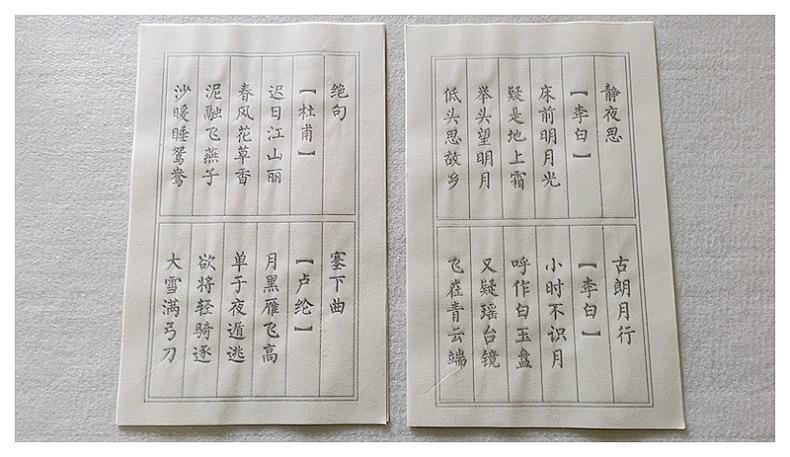 静夜思
【李白】
床前明月光
疑是地上霜
举头望明月
低头思故乡
古朗月行
【李白】
小时不识月
呼作白玉盘
又疑瑶台镜
飞在青云端
绝句
【杜甫】
迟日江山丽
春风花草香
泥融飞燕子
沙暖睡鸳鸯
塞下曲
【卢纶】
月黑雁飞高
单于夜遁逃
欲将轻骑逐
大雪满弓刀